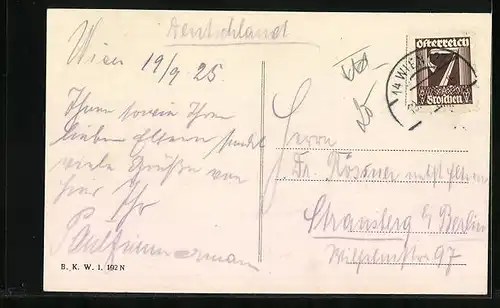 Deutschland
Wien 19/9 25
Ihnen sowie Ihren
lieben Eltern sendet
viele Grüße von
hier Ihr
Paul Zimmermann
B. K. W. I. 192 N
Österreich
7
Groschen
14 WIEN
Herrn
Dr. Rössner nebst Eltern
Strausberg b/ Berlin
Wilhelmstr 97